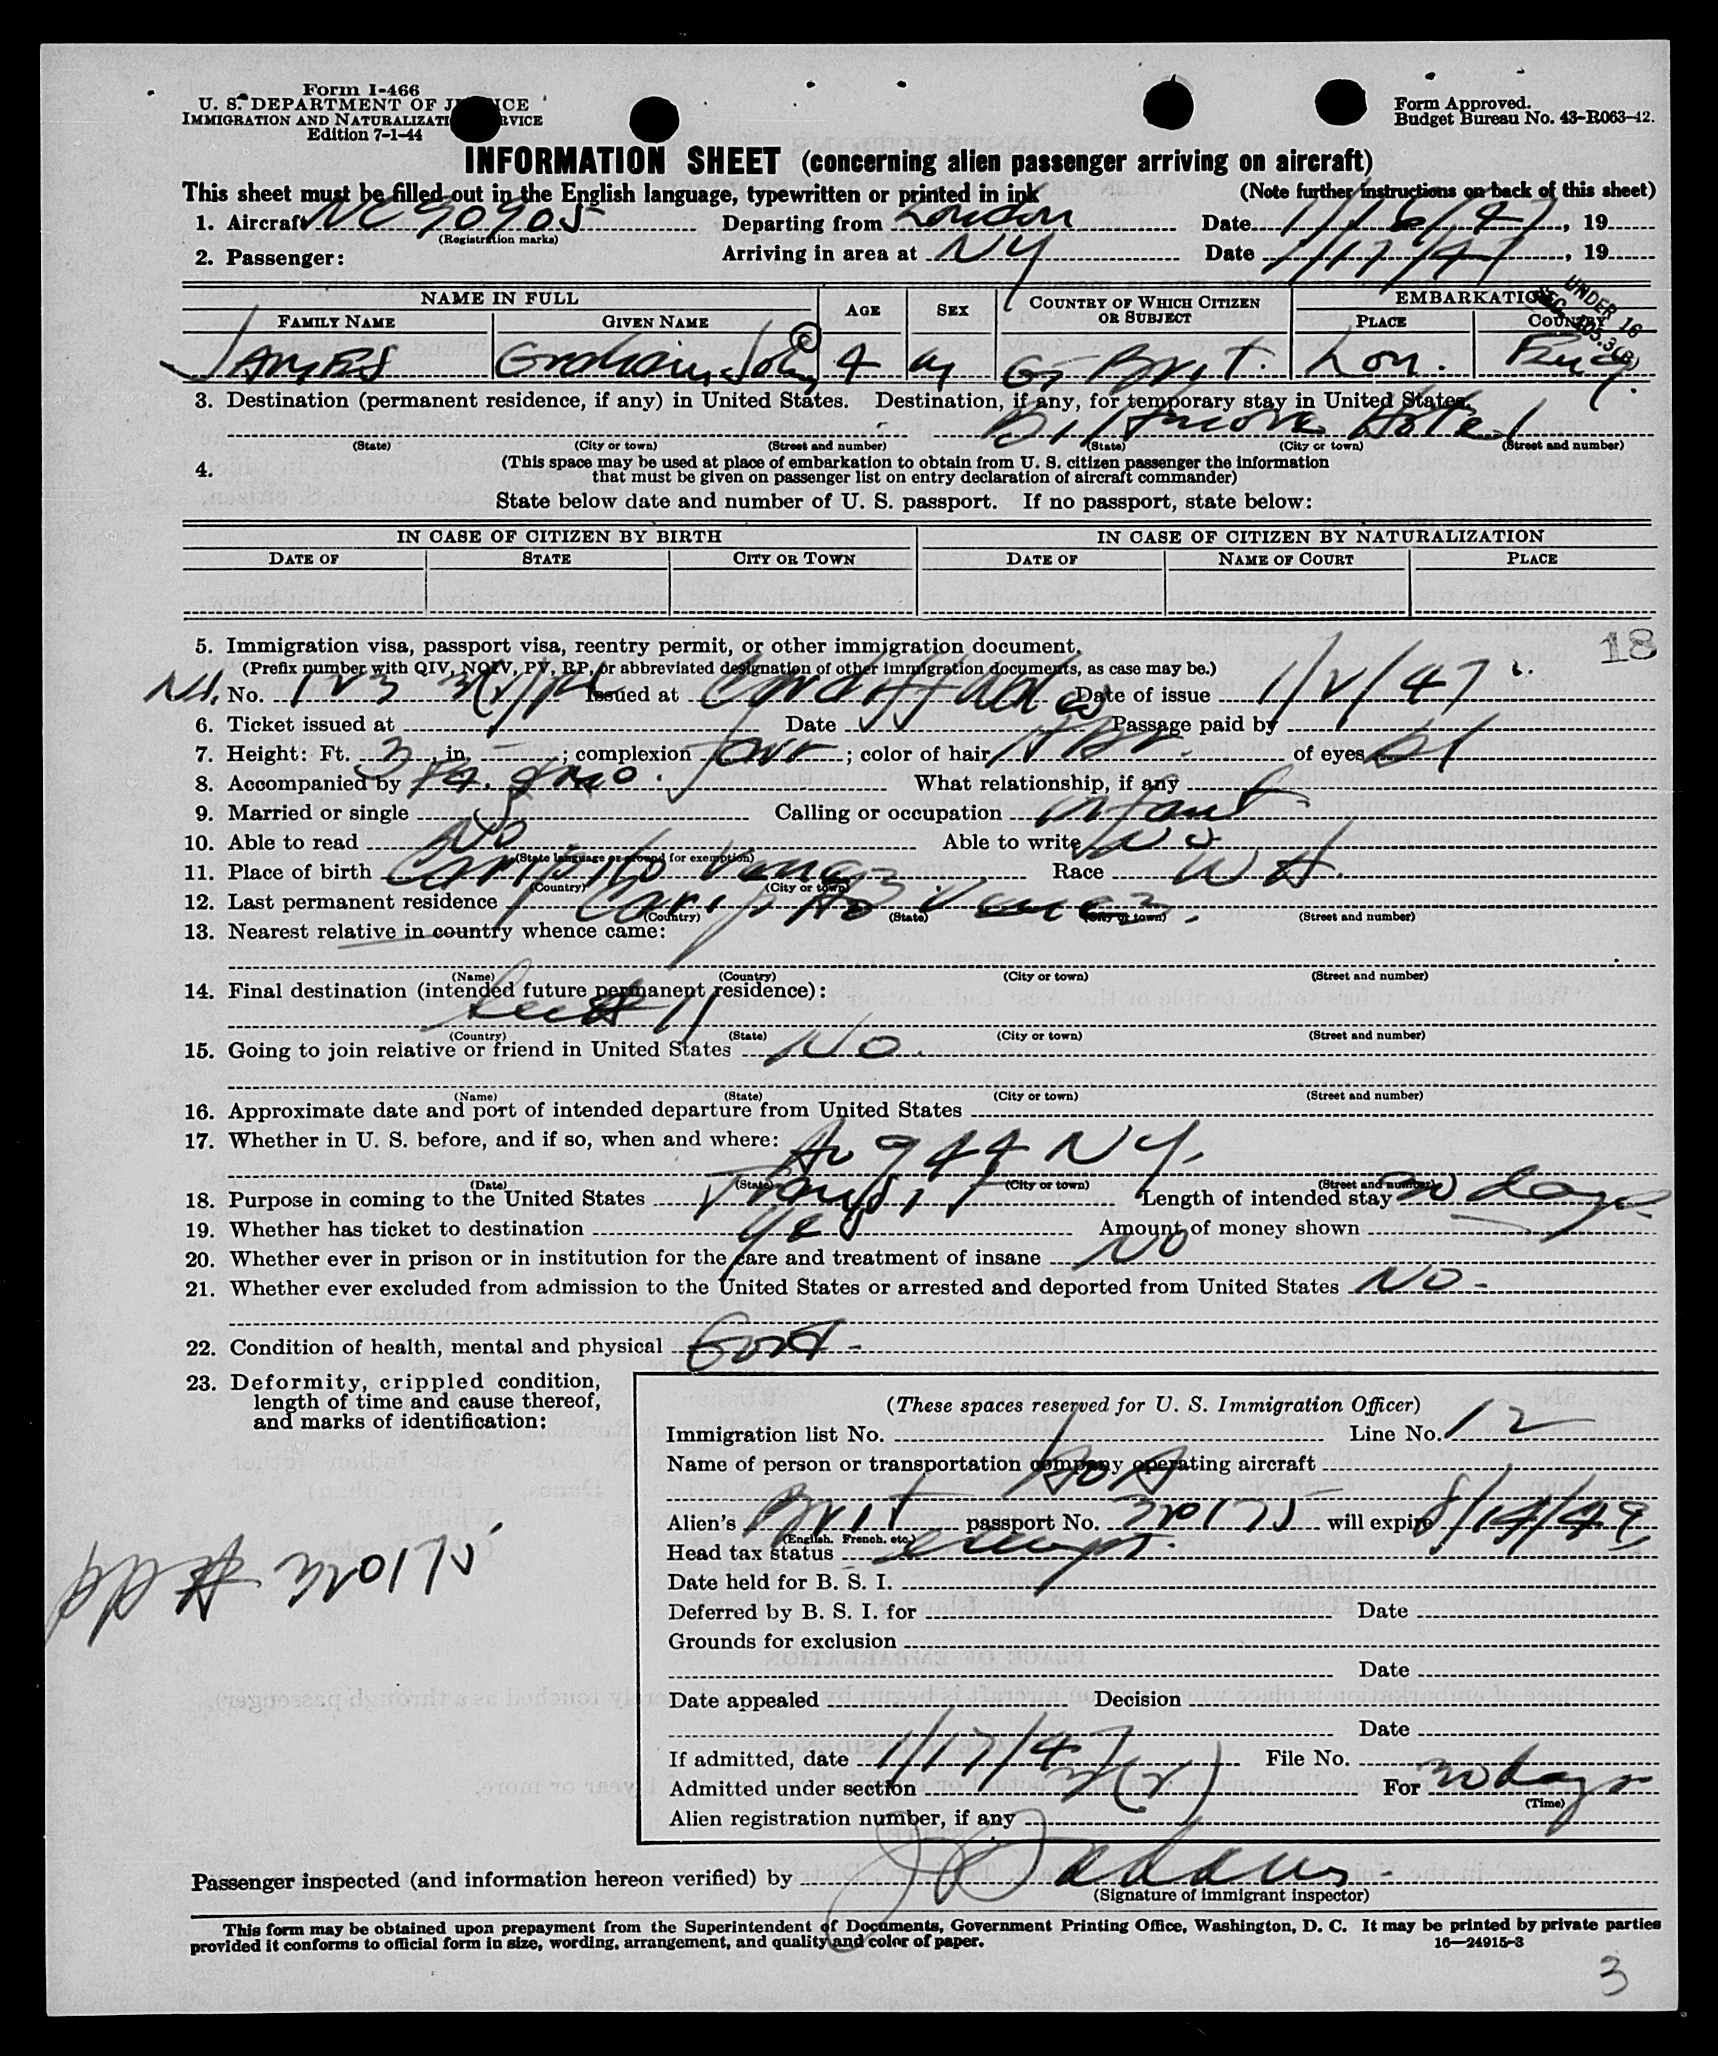 Form I-466
U. S. DEPARTMENT OF JUSTICE
IMMIGRATION AND NATURALIZATION SERVICE
Edition 7-1-44
Form Approved.
Budget Bureau No. 43-R063-42.
INFORMATION SHEET (concerning alien passenger arriving on aircraft)
This sheet must be filled out in the English language, typewritten or printed in ink (Note further instructions on back of this sheet)
1. Aircraft NC90905 Departing from London Date 1/16/47, 19
(Registration marks)
2. Passenger: Arriving in area at NY Date 1/17/47, 19
NAME IN FULL AGE SEX COUNTRY OF WHICH CITIZEN OR SUBJECT EMBARKATION
UNDER 16
FAMILY NAME GIVEN NAME PLACE COUNTRY
JAMES Graham John 4 M Gt Brit. Lon. Eng.
3. Destination (permanent residence, if any) in United States. Destination, if any, for temporary stay in United States.
Biltmore Hotel
(State) (City or town) (Street and number) (State) (City or town) (Street and number)
4. (This space may be used at place of embarkation to obtain from U. S. citizen passenger the information
that must be given on passenger list on entry declaration of aircraft commander)
State below date and number of U. S. passport. If no passport, state below:
IN CASE OF CITIZEN BY BIRTH IN CASE OF CITIZEN BY NATURALIZATION
DATE OF STATE CITY OR TOWN DATE OF NAME OF COURT PLACE
5. Immigration visa, passport visa, reentry permit, or other immigration document.
18
(Prefix number with QIV, NQIV, PV, RP, or abbreviated designation of other immigration documents, as case may be.)
No. 123 Issued at Cardiff Wales Date of issue 1/2/47
6. Ticket issued at Date Passage paid by
7. Height: Ft. 3, in. -; complexion fair; color of hair of eyes bl
8. Accompanied by Fa. & Mo. What relationship, if any
9. Married or single S Calling or occupation infant
10. Able to read No Able to write No
(State language or ground for exemption)
11. Place of birth Caripito Venez Race Wh.
(Country) (City or town)
12. Last permanent residence Caripito Venez.
(Country) (State) (City or town) (Street and number)
13. Nearest relative in country whence came:
(Name) (Country) (City or town) (Street and number)
14. Final destination (intended future permanent residence):
(Country) (State) (City or town) (Street and number)
15. Going to join relative or friend in United States No.
(Name) (State) (City or town) (Street and number)
16. Approximate date and port of intended departure from United States
17. Whether in U. S. before, and if so, when and where:
Aug 44 NY.
(Date) (State) (City or town) (Street and number)
18. Purpose in coming to the United States Transit Length of intended stay 30 days
19. Whether has ticket to destination Yes Amount of money shown
20. Whether ever in prison or in institution for the care and treatment of insane No
21. Whether ever excluded from admission to the United States or arrested and deported from United States No -
22. Condition of health, mental and physical Good -
23. Deformity, crippled condition,
length of time and cause thereof,
and marks of identification:
(These spaces reserved for U. S. Immigration Officer)
Immigration list No. Line No. 12
Name of person or transportation company operating aircraft
AOA
Alien's Brit passport No. 320175 will expire 8/14/49
(English, French, etc.)
Head tax status exempt.
320175
Date held for B. S. I.
Deferred by B. S. I. for Date
Grounds for exclusion
Date
Date appealed Decision
Date
If admitted, date 1/17/47 File No.
Admitted under section 3(2) For 30 days
(Time)
Alien registration number, if any
Passenger inspected (and information hereon verified) by
(Signature of immigrant inspector)
This form may be obtained upon prepayment from the Superintendent of Documents, Government Printing Office, Washington, D. C. It may be printed by private parties
provided it conforms to official form in size, wording, arrangement, and quality and color of paper. 16—24915-3
3